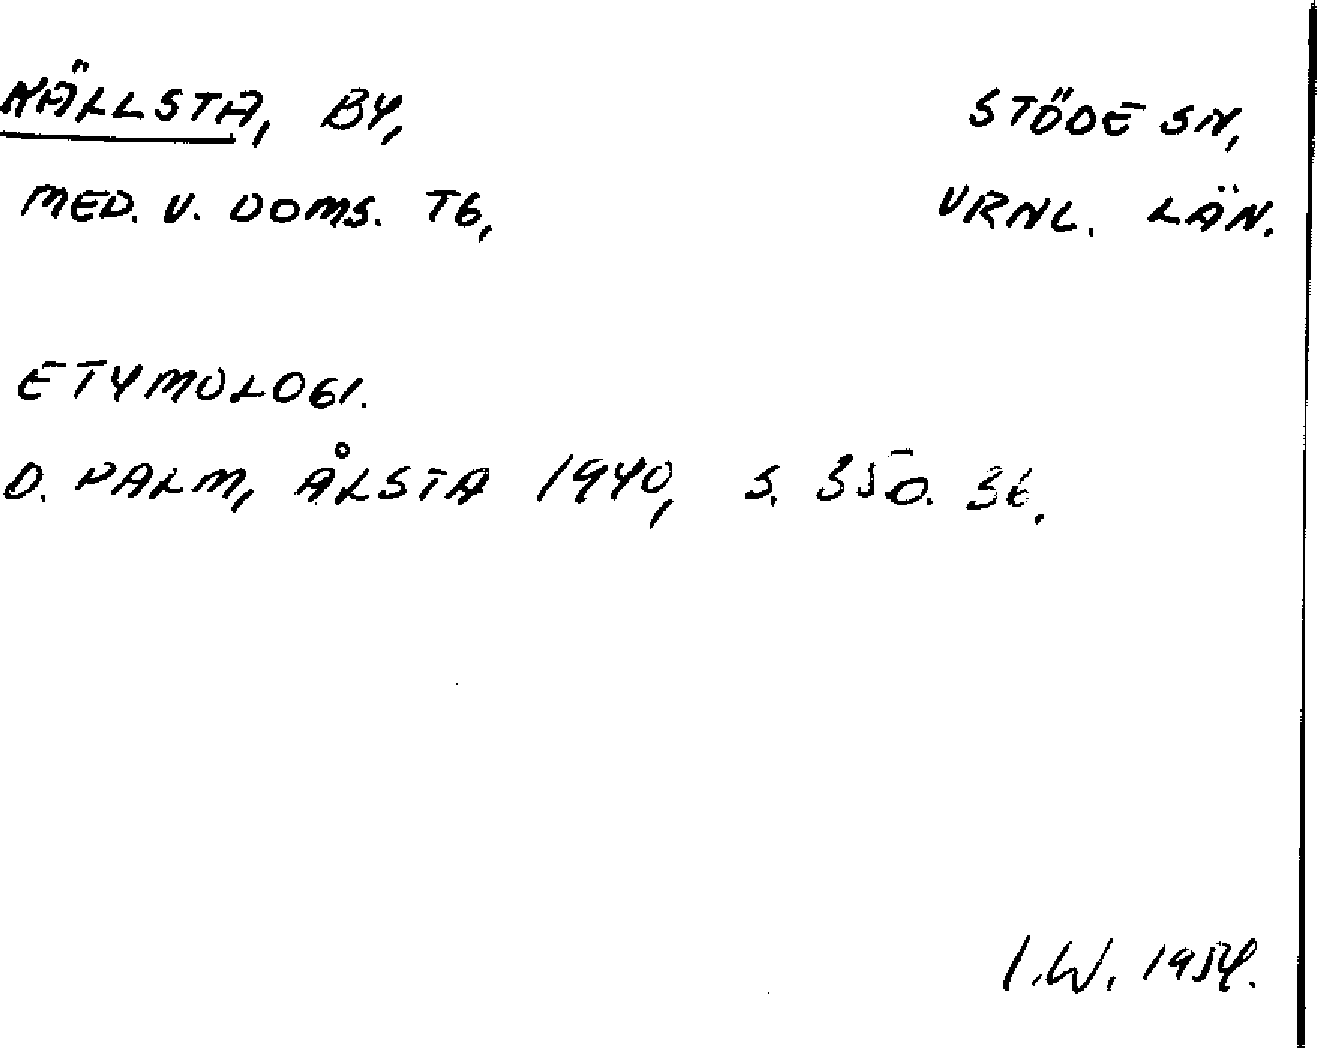 KÄLLSTA, BY, STÖDE SN,
MED. V. DOMS. TG, VRNL. LÄN.
ETYMOLOGI.
D. PALM, ÅLSTA 1940, S. 35 O. 36.
I.W. 1954.